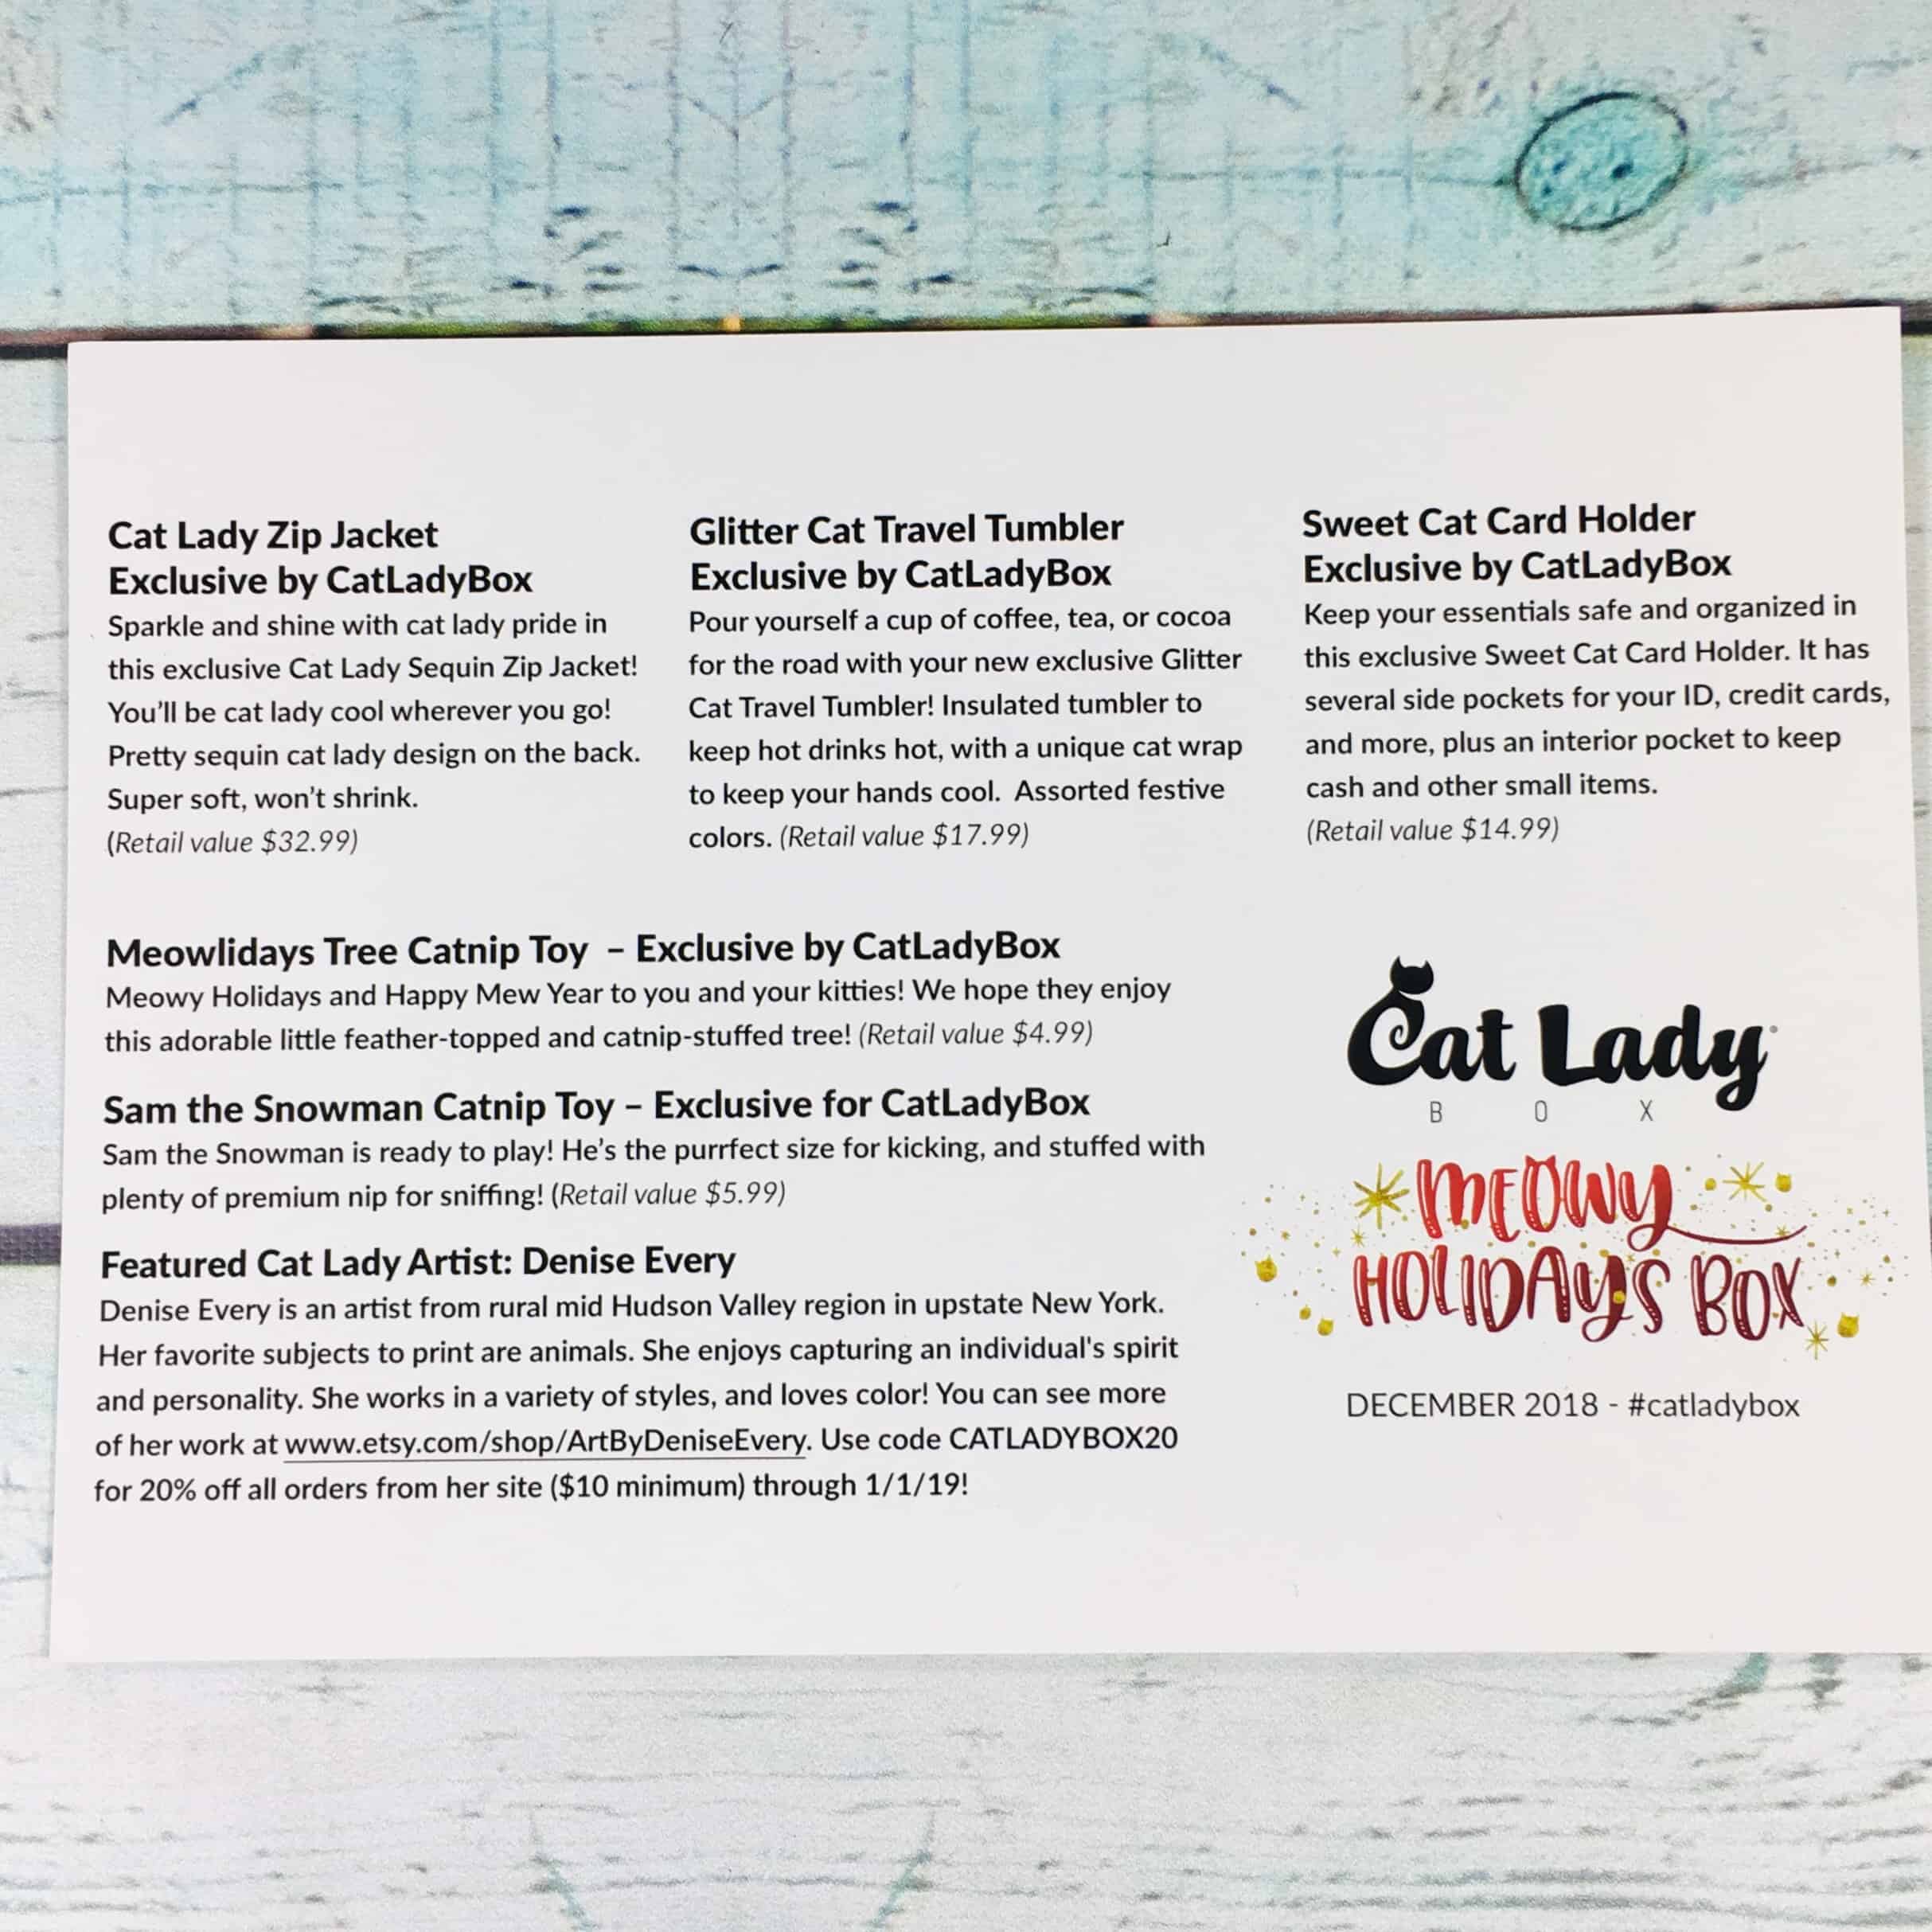 Cat Lady Zip Jacket
Exclusive by CatLadyBox
Sparkle and shine with cat lady pride in
this exclusive Cat Lady Sequin Zip Jacket!
You'll be cat lady cool wherever you go!
Pretty sequin cat lady design on the back.
Super soft, won't shrink.
(Retail value $32.99)
Glitter Cat Travel Tumbler
Exclusive by CatLadyBox
Pour yourself a cup of coffee, tea, or cocoa
for the road with your new exclusive Glitter
Cat Travel Tumbler! Insulated tumbler to
keep hot drinks hot, with a unique cat wrap
to keep your hands cool.  Assorted festive
colors. (Retail value $17.99)
Sweet Cat Card Holder
Exclusive by CatLadyBox
Keep your essentials safe and organized in
this exclusive Sweet Cat Card Holder. It has
several side pockets for your ID, credit cards,
and more, plus an interior pocket to keep
cash and other small items.
(Retail value $14.99)
Meowlidays Tree Catnip Toy  – Exclusive by CatLadyBox
Meowy Holidays and Happy Mew Year to you and your kitties! We hope they enjoy
this adorable little feather-topped and catnip-stuffed tree! (Retail value $4.99)
Sam the Snowman Catnip Toy – Exclusive for CatLadyBox
Sam the Snowman is ready to play! He's the purrfect size for kicking, and stuffed with
plenty of premium nip for sniffing! (Retail value $5.99)
Featured Cat Lady Artist: Denise Every
Denise Every is an artist from rural mid Hudson Valley region in upstate New York.
Her favorite subjects to print are animals. She enjoys capturing an individual's spirit
and personality. She works in a variety of styles, and loves color! You can see more
of her work at www.etsy.com/shop/ArtByDeniseEvery. Use code CATLADYBOX20
for 20% off all orders from her site ($10 minimum) through 1/1/19!
Cat Lady
BOX
MEOWY
HOLIDAYS BOX
DECEMBER 2018 - #catladybox